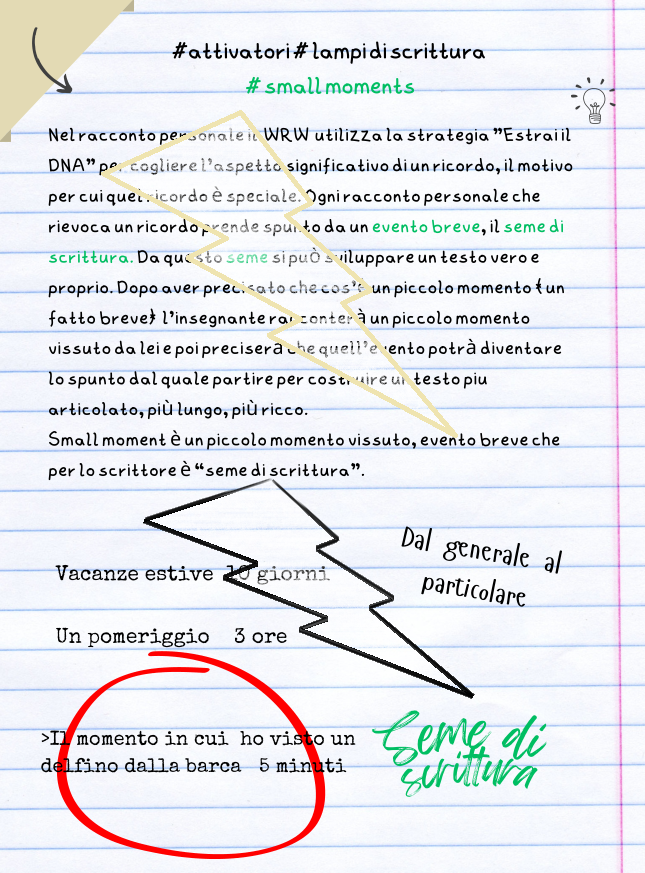 #attivatori#lampidiscrittura
# smallmoments
Nel racconto personale il WRW utilizza la strategia "Estrai il
DNA" per cogliere l'aspetto significativo di un ricordo, il motivo
per cui quel ricordo è speciale. Ogni racconto personale che
rievoca un ricordo prende spunto da un evento breve, il seme di
scrittura. Da questo seme si può sviluppare un testo vero e
proprio. Dopo aver precisato che cos'è un piccolo momento (un
fatto breve) l'insegnante racconterà un piccolo momento
vissuto da lei e poi preciserà che quell'evento potrà diventare
lo spunto dal quale partire per costruire un testo piu
articolato, più lungo, più ricco.
Small moment è un piccolo momento vissuto, evento breve che
per lo scrittore è "seme di scrittura".
Dal generale al
particolare
Vacanze estive 10 giorni
Un pomeriggio 3 ore
>Il momento in cui ho visto un
delfino dalla barca 5 minuti
Seme di
scrittura